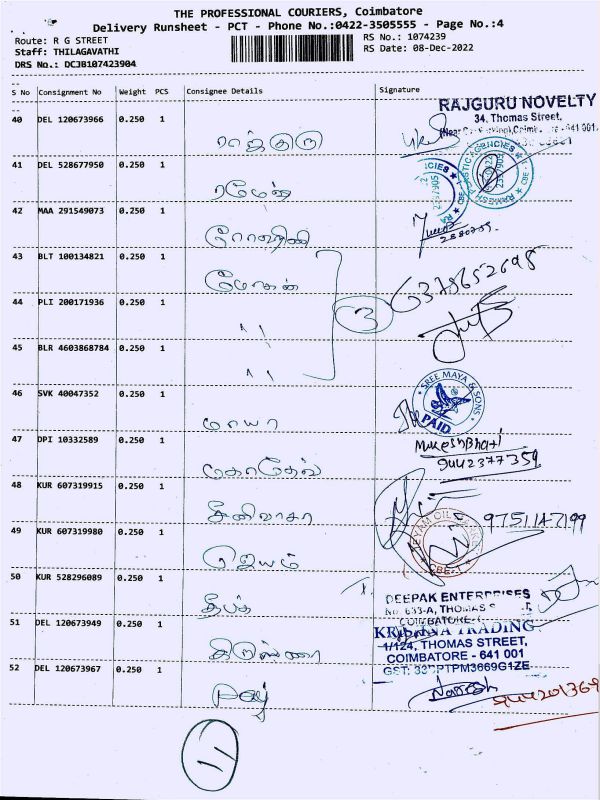 THE PROFESSIONAL COURIERS, Coimbatore
Delivery Runsheet - PCT - Phone No.:0422-3505555 - Page No.:4
Route: R G STREET
RS No.: 1074239
Staff: THILAGAVATHI
RS Date: 08-Dec-2022
DRS No.: DCJB107423904
S No Consignment No Weight PCS Consignee Details Signature
RAJGURU NOVELTY
34, Thomas Street,
40 DEL 120673966 0.250 1
ராஜ்குரு
41 DEL 528677950 0.250 1
ரமேஷ்
42 MAA 291549073 0.250 1
43 BLT 100134821 0.250 1
மோகன்
44 PLI 200171936 0.250 1
3
45 BLR 4603868784 0.250 1
46 SVK 40047352 0.250 1
SREE MAYA & SONS
PAID
மாயா
47 DPI 10332589 0.250 1
Mukesh Bhati
9442377359
48 KUR 607319915 0.250 1
சீனிவாசா
49 KUR 607319980 0.250 1
9751147199
ஜெயம்
50 KUR 528296089 0.250 1
தீபக்
DEEPAK ENTERPRISES
51 DEL 120673949 0.250 1
KRISHNA TRADING
1/124, THOMAS STREET,
COIMBATORE - 641 001
கிருஷ்ணா
52 DEL 120673967 0.250 1
Naresh
11